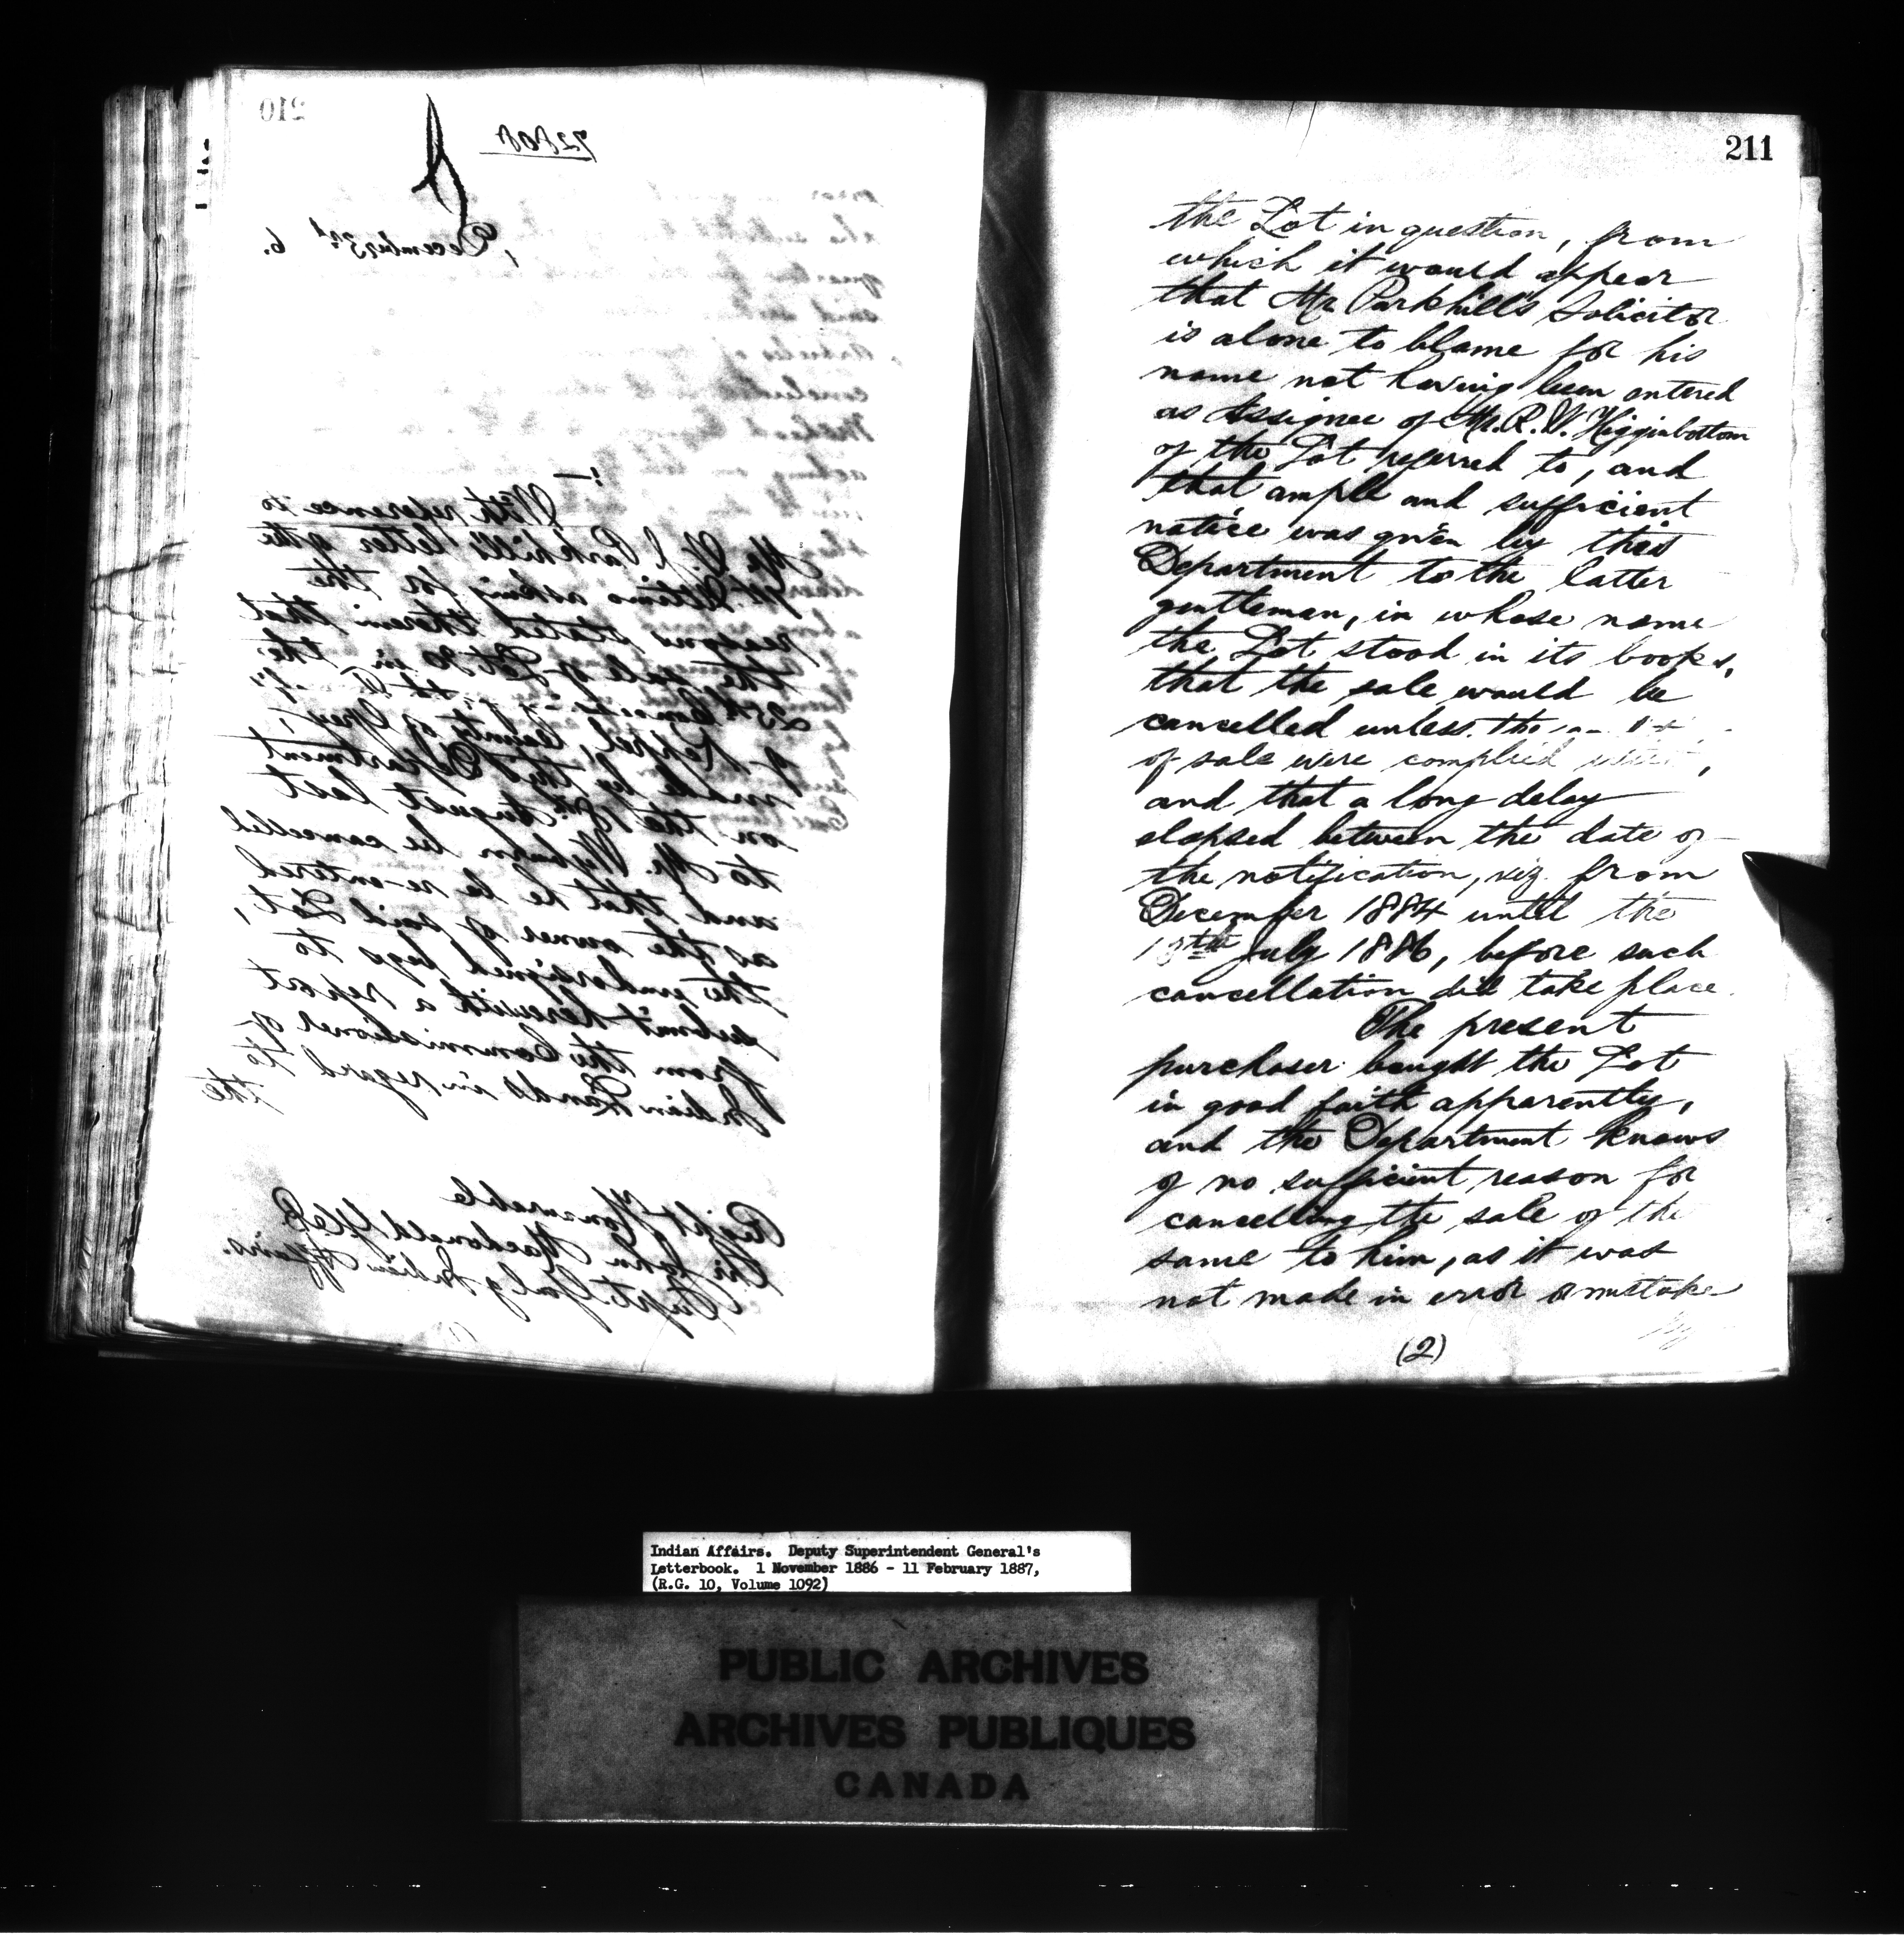 210
72808
December 3rd 6.
:—
With reference to
Mr. Parkhill's letter of the
asking for the
reasons stated therein that
the sale of Lot 30 in the
25th
of Keppel, County of Grey,
made by this Department
on the August last
to Mr. be cancelled
and that he be re-entered
as the owner of said Lot,
the undersigned begs to
submit herewith a report
from the Commissioner of
Indian Lands in regard to
the
Right Honourable
Sir John Macdonald G.C.B
Supt. Genl of Indian Affairs.
(1)
211
the Lot in question, from
which it would appear
that Mr Parkhill's Solicitor
is alone to blame for his
name not having been entered
as Assignee of Mr. R. W. Higginbottom
of the Lot referred to, and
that ample and sufficient
notice was given by this
Department to the latter
gentleman, in whose name
the Lot stood in its books,
that the sale would be
cancelled unless the
of sale were complied with,
and that a long delay
elapsed between the date of
the notification, viz. from
December 1884 until the
July 1886, before such
cancellation did take place.
The present
purchaser bought the Lot
in good faith apparently,
and the Department knows
of no sufficient reason for
cancelling the sale of the
same to him, as it was
not made in error or mistake
(2)
Indian Affairs. Deputy Superintendent General's
Letterbook. 1 November 1886 - 11 February 1887,
(R.G. 10, Volume 1092)
PUBLIC ARCHIVES
ARCHIVES PUBLIQUES
CANADA